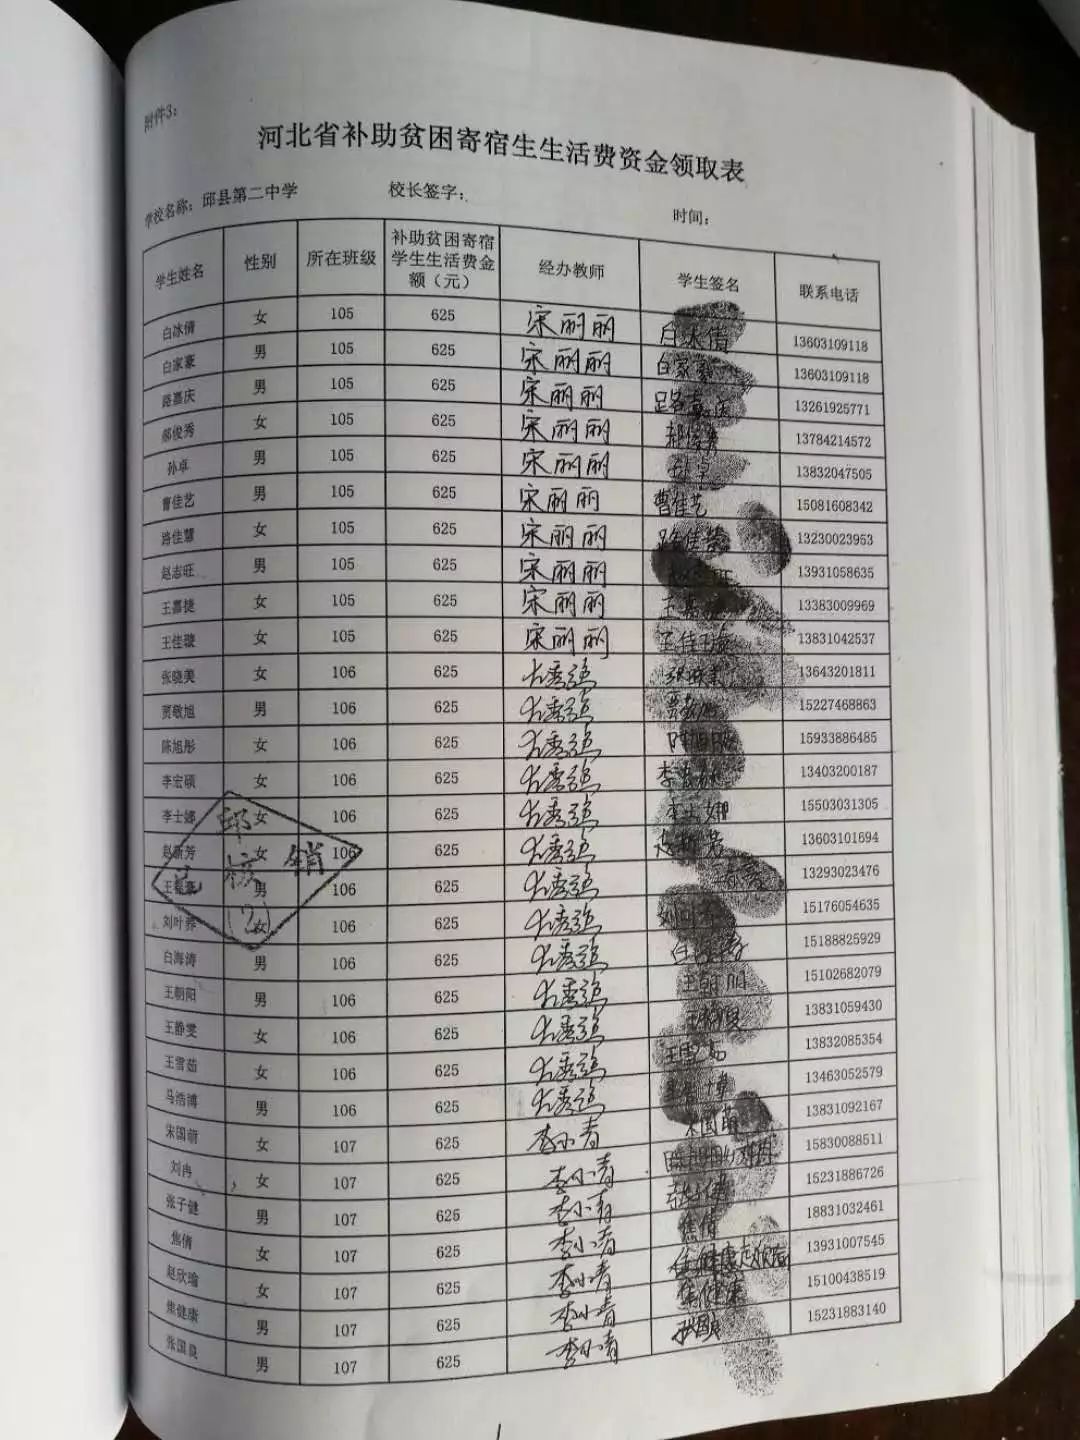 附件3：
河北省补助贫困寄宿生生活费资金领取表
学校名称：邱县第二中学 校长签字： 时间：
学生姓名 性别 所在班级 补助贫困寄宿学生生活费金额（元） 经办教师 学生签名 联系电话
白冰倩 女 105 625 宋丽丽 白冰倩 13603109118
白家豪 男 105 625 宋丽丽 白家豪 13603109118
路嘉庆 男 105 625 宋丽丽 路嘉庆 13261925771
郝俊秀 女 105 625 宋丽丽 郝俊秀 13784214572
孙卓 男 105 625 宋丽丽 孙卓 13832047505
曹佳艺 男 105 625 宋丽丽 曹佳艺 15081608342
路佳慧 女 105 625 宋丽丽 路佳慧 13230023953
赵志旺 男 105 625 宋丽丽 13931058635
王嘉捷 女 105 625 宋丽丽 13383009969
王佳璇 女 105 625 宋丽丽 王佳璇 13831042537
张晓美 女 106 625 13643201811
贾敬旭 男 106 625 15227468863
陈旭彤 女 106 625 15933886485
李宏硕 女 106 625 13403200187
李士娜 女 106 625 李士娜 15503031305
赵新芳 女 106 625 赵新芳 13603101694
男 106 625 13293023476
女 106 625 15176054635
白海涛 男 106 625 白海涛 15188825929
王朝阳 男 106 625 王朝阳 15102682079
王静雯 女 106 625 13831059430
王雪茹 女 106 625 王雪茹 13832085354
马浩博 男 106 625 13463052579
宋国萌 女 107 625 李小青 宋国萌 13831092167
刘冉 女 107 625 李小青 15830088511
张子健 男 107 625 李小青 张子健 15231886726
焦倩 女 107 625 李小青 焦倩 18831032461
赵欣瑜 女 107 625 李小青 赵欣瑜 13931007545
焦健康 男 107 625 李小青 焦健康 15100438519
张国良 男 107 625 李小青 张国良 15231883140
邱
已核销
(2)